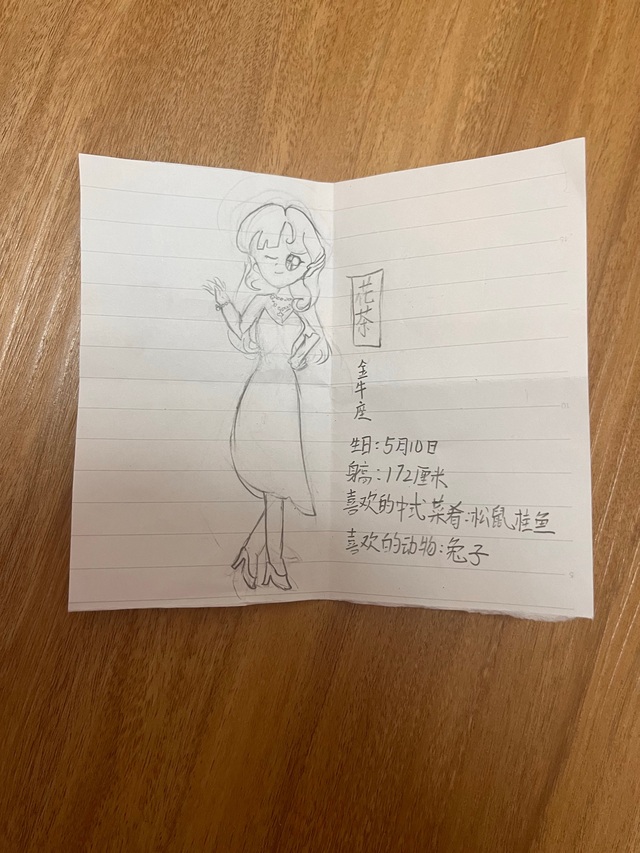 花茶
金牛座
生日:5月10日
身高:172厘米
喜欢的中式菜肴:松鼠桂鱼
喜欢的动物:兔子